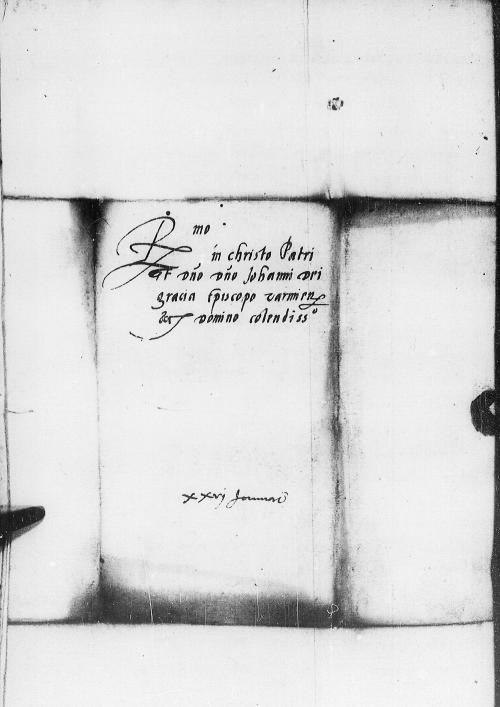 R mo
in christo Patri
et dño dño Johanni Dei
gracia Episcopo varmien
&c Domino colendiss°
xxvj Januarii